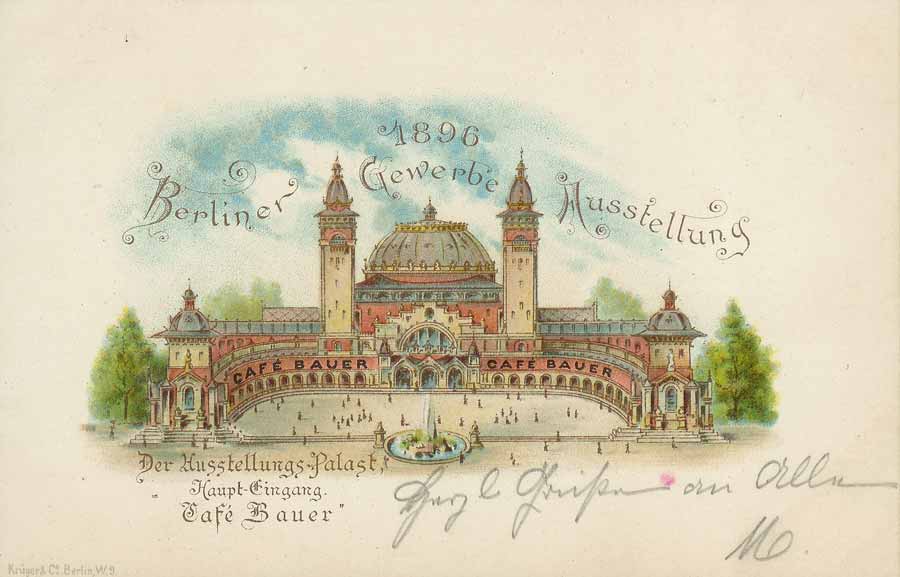 1896
Berliner Gewerbe Ausstellung
CAFÉ BAUER CAFÉ BAUER
Der Ausstellungs-Palast,
"Haupt-Eingang.
Café Bauer"
Herzl Grüße an Alle
M.
Krüger & Co. Berlin, W. 9.